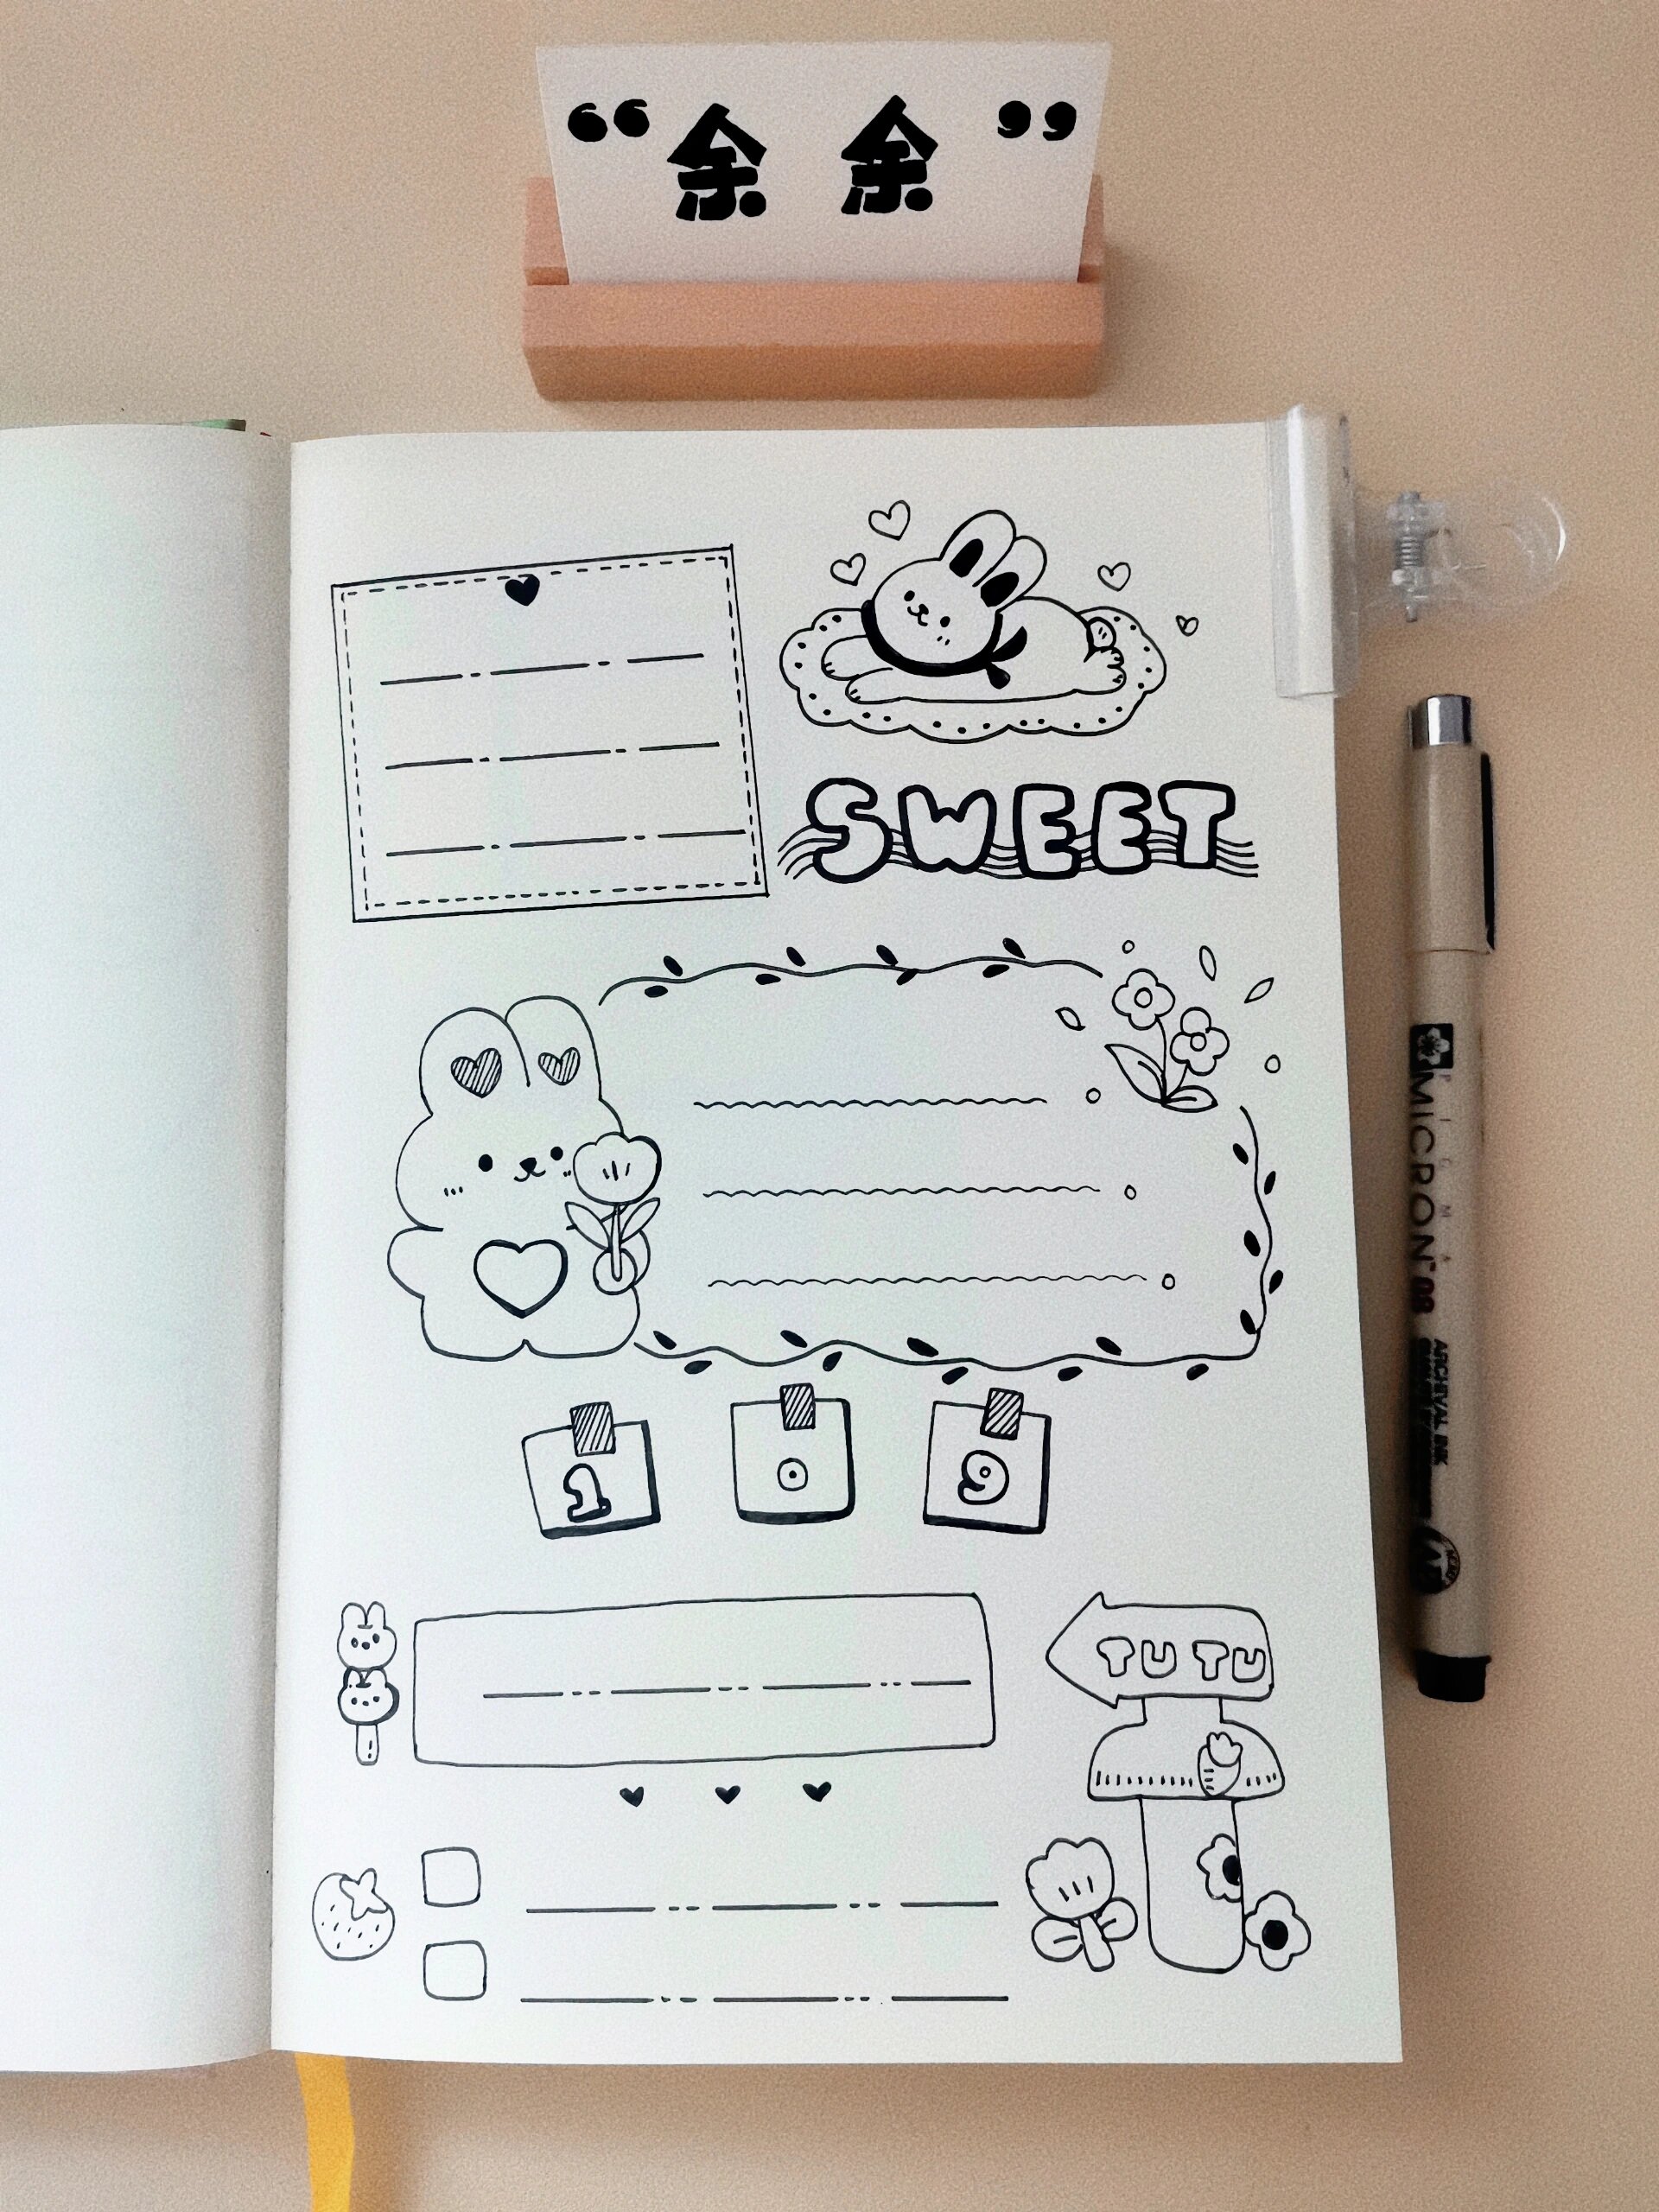 “余 余”
SWEET
1 0 9
TU TU
PIGMA
MICRON 08
ARCHIVAL INK